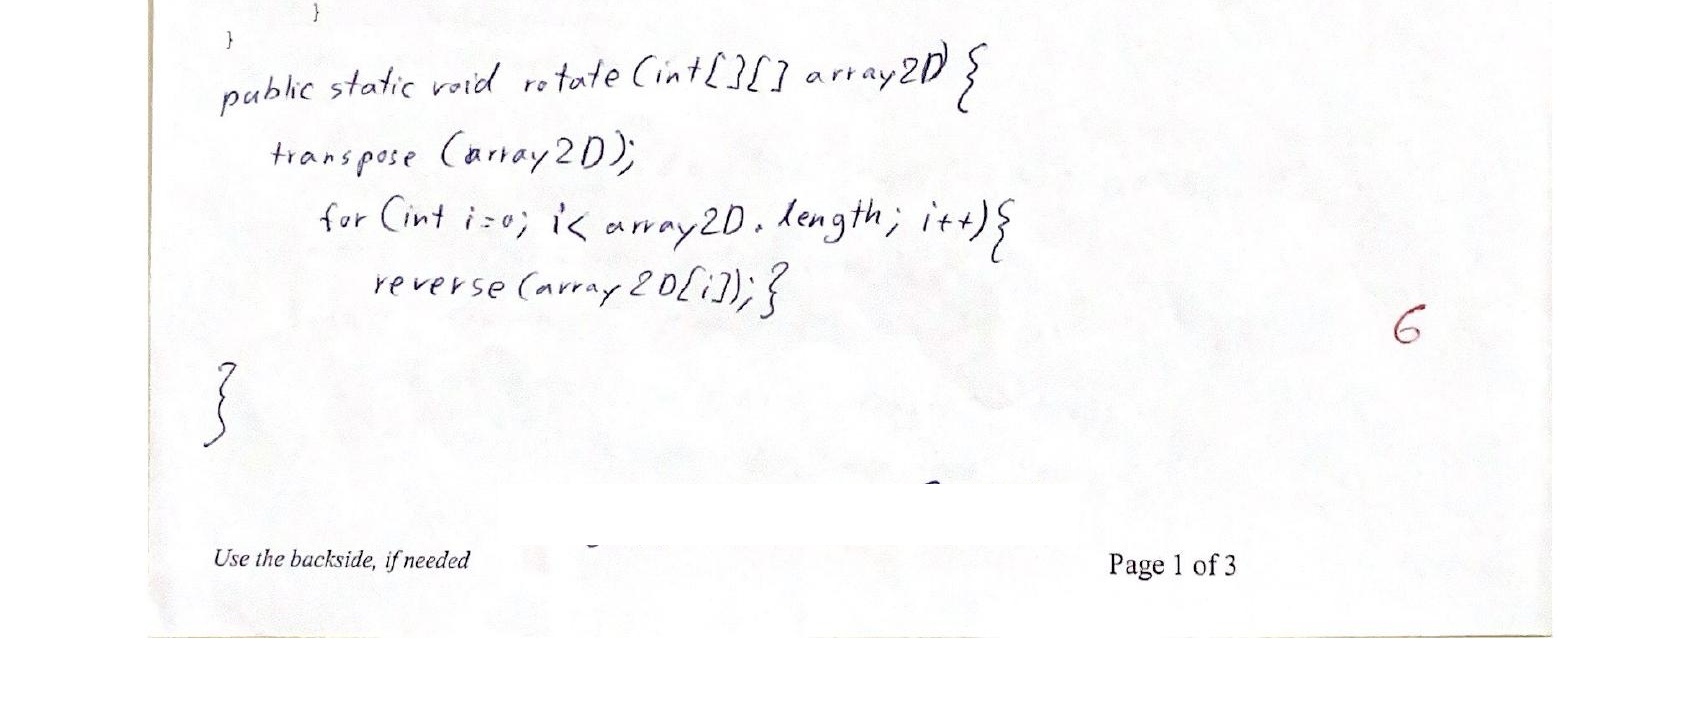 }
}
public static void rotate (int[][] array2D) {
transpose (array2D);
for (int i=0; i< array2D.length; i++){
reverse (array2D[i]);}
6
}
Use the backside, if needed
Page 1 of 3